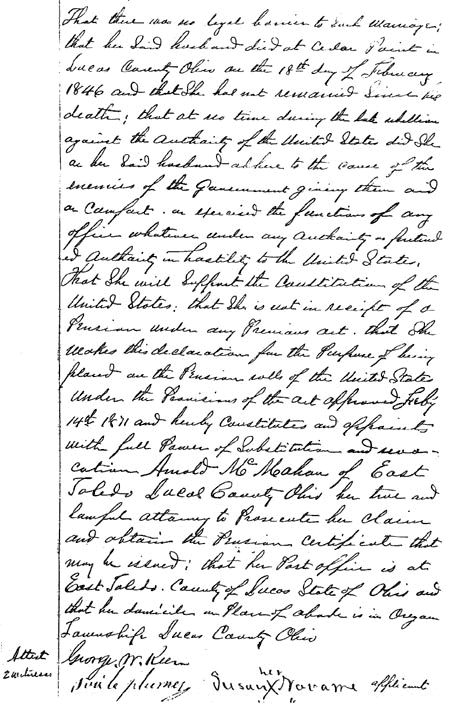 That there was no legal barrier to such marriage;
that her said husband died at Cedar Point in
Lucas County Ohio on the 18th day of February,
1846 and that She has not remained Since his
death; that at no time during the late rebellion
against the Authority of the United States did She
or her Said husband adhere to the cause of the
enemies of the Government giving them aid
or Comfort. or exercised the functions of any
office whatever under any Authority or pretend
ed Authority in hostility to the United States.
That She will Support the Constitution of the
United States: that She is not in receipt of a
Pension under any Previous act. that She
makes this declaration for the Purpose of being
placed on the Pension rolls of the United States
under the Provisions of the act approved Feby
14th 1871 and hereby Constitutes and appoints
with full Power of Substitution and revo-
cation Arnold McMahan of East
Toledo Lucas County Ohio her true and
lawful attorney to Prosecute her Claim
and obtain the Pension Certificate that
may be issued; that her Post office is at
East Toledo. County of Lucas State of Ohio and
that her domicile or Place of abode is in Oregon
Township Lucas County Ohio
Attest George. W. Keen
2 witness her
Susan X Navarre applicant